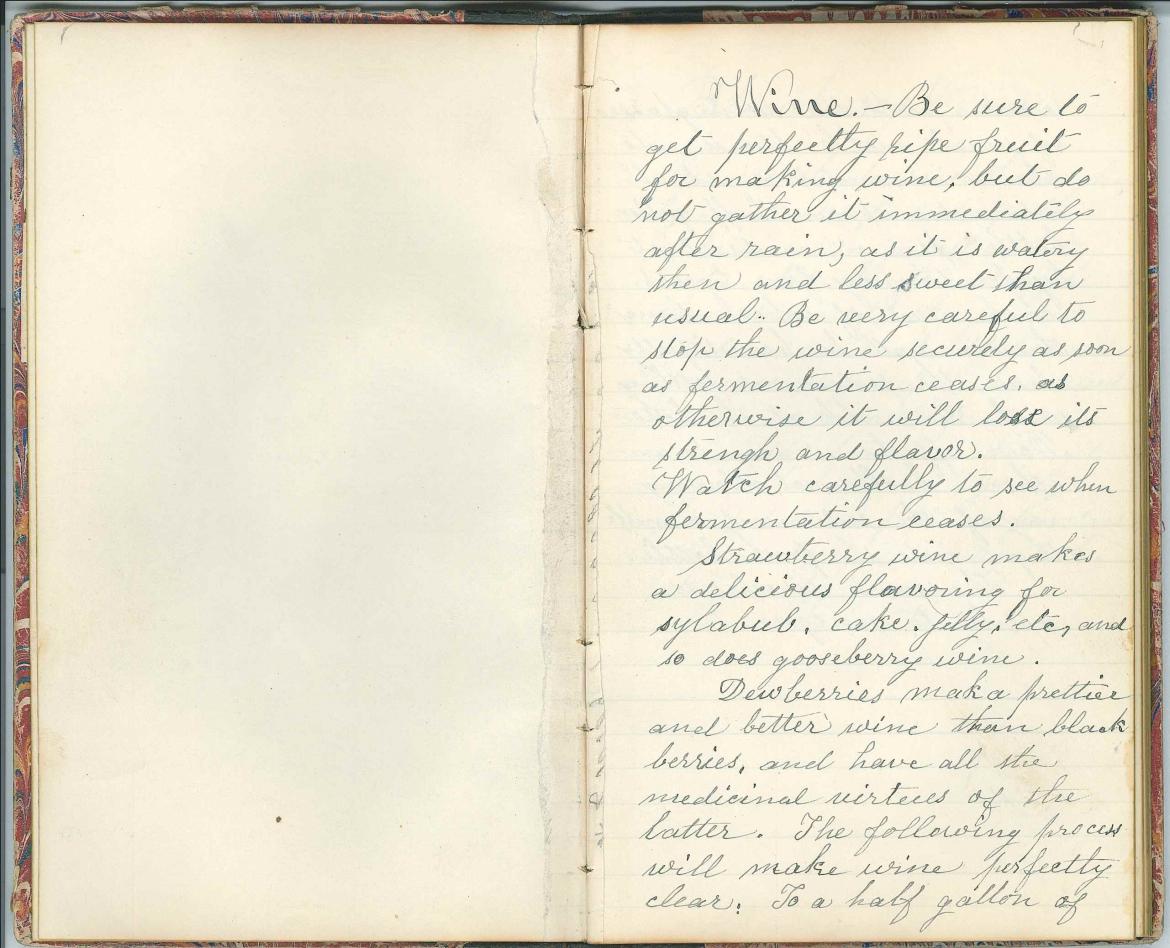 Wine. – Be sure to
get perfectly ripe fruit
for making wine, but do
not gather it immediately
after rain, as it is watery
then and less sweet than
usual. Be very careful to
stop the wine securely as soon
as fermentation ceases, as
otherwise it will lose its
strengh and flavor.
Watch carefully to see when
fermentation ceases.
Strawberry wine makes
a delicious flavoring for
sylabub, cake, jelly, etc, and
so does gooseberry wine.
Dewberries mak a prettier
and better wine than black
berries, and have all the
medicinal virtues of the
latter. The following process
will make wine perfectly
clear: To a half gallon of